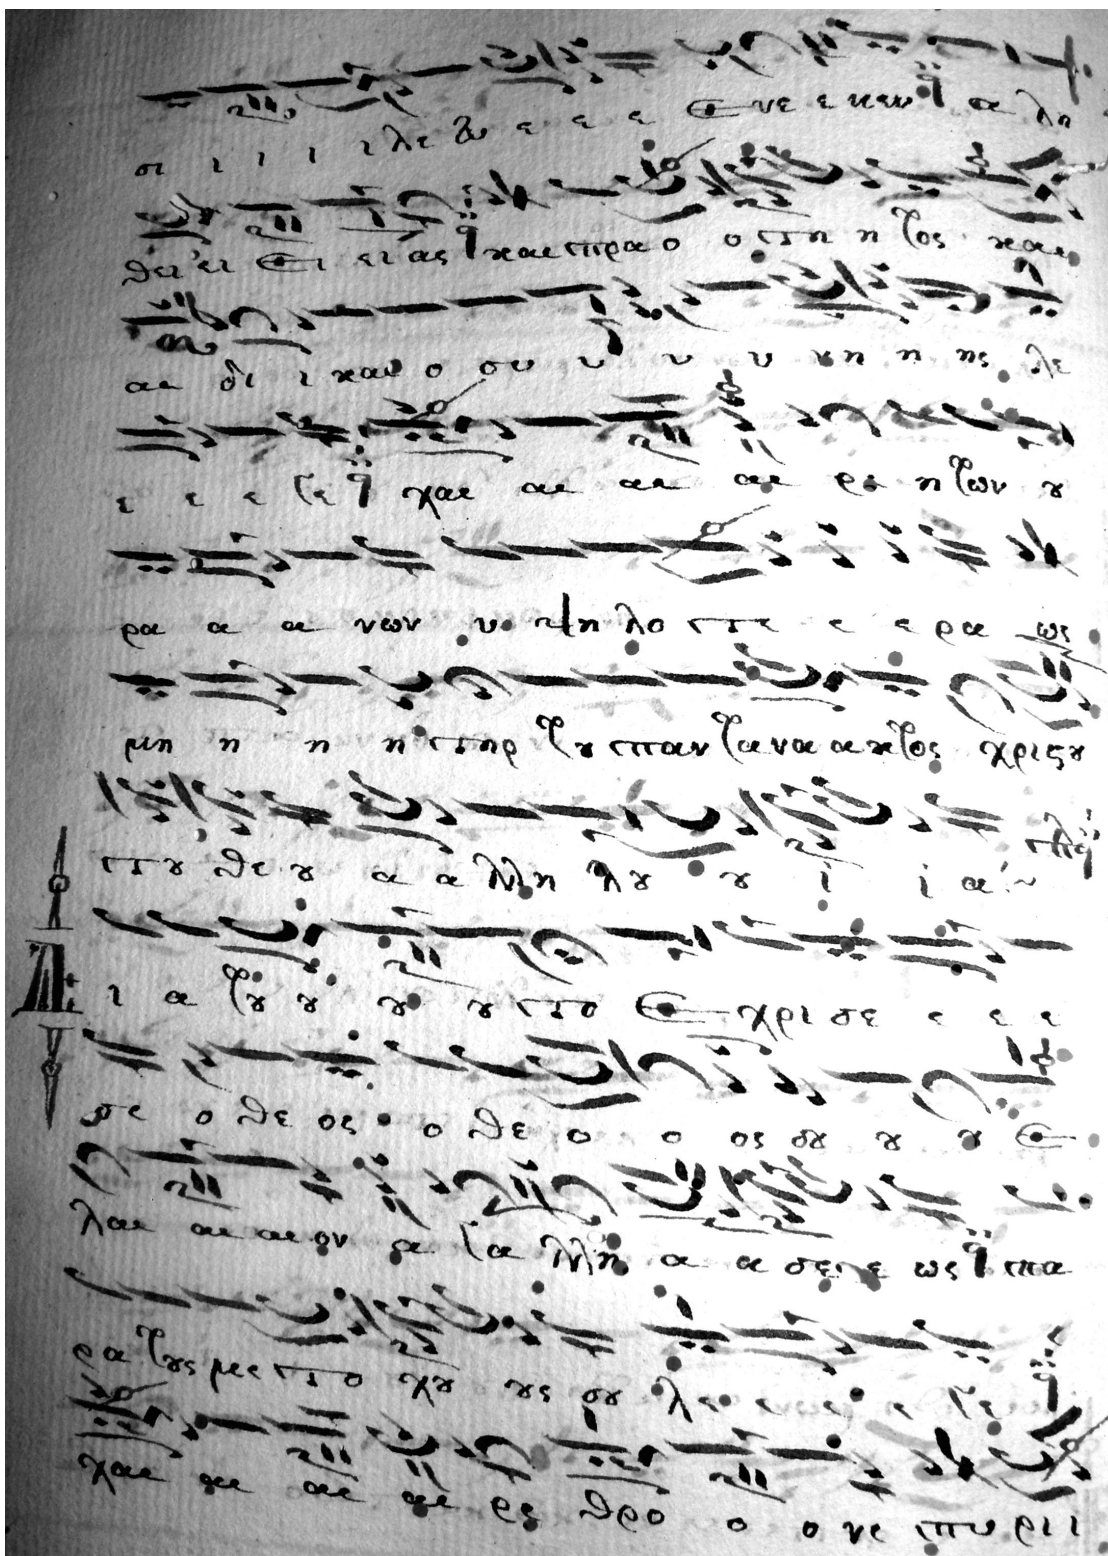 σι ι ι ι ι λε ευ ε ε ε ε νε ε κεν α λη
θει ει ει ει ας και πρα ο ο τη η τος και
αι δι ι και ο συ υ υ υ νη η ης λε
ε ε ε τε χαι αι αι αι ρε η των ου
ρα α α νων υ ψη λο τε ε ε ρα ως
μη η η η τηρ του παντανα ακτος χριστου
του θε ου α α λλη λου ου ι ι α
ι α του ου ου ου το ε χρι σε ε ε ε
σε ο θε ος ο θε ο ο ος σου ου ου ε
λαι αι αι ον α γα λλη α α σε ε ως πα
ρα τους με το χου ους σου λε ε ε τε
χαι αι αι αι ρε θρο ο ο νε πυ ρι ι